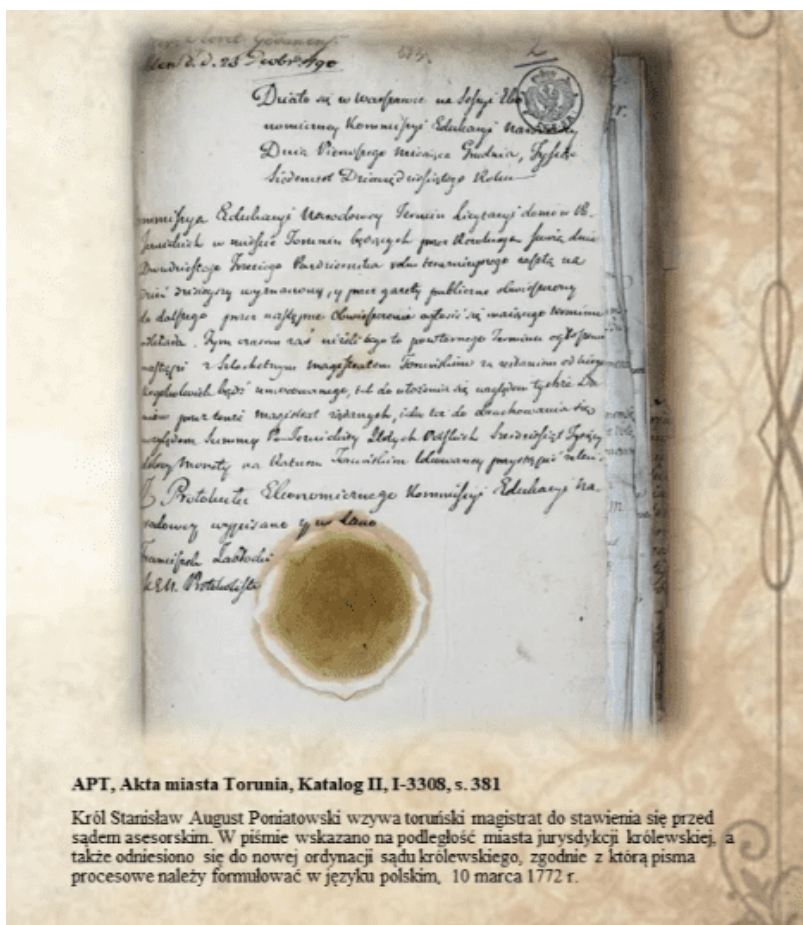 Działo się w Warszawie na Sessyi Eko
nomiczney Kommissyi Edukacyi Narodowey
Dnia Pierwszego Miesiąca Grudnia, Tysiąc
Siedemset Dziewięćdziesiątego Roku
Kommissya Edukacyi Narodowey Termin licytacyi domów
w mieście Toruniu będących przez Rezolucyą swoią dnia
Dwudziestego Trzeciego Pazdziernika roku teraznieyszego zaszłą na
dzień dzisieyszy wyznaczony, y przez gazety publiczne obwieszczony
do dalszego przez następne obwieszczenie ogłosić się maiącego terminu
odkłada. Tym czasem zaś nieżeli tego to powtornego Terminu ogłoszenie
nastąpi z Szlachetnym Magistratem Toruńskim
względem tychże Do
mów przez tenże Magistrat żądanych, iako też do
względem Summy Złotych Polskich Sześćdziesiąt Tysięcy
Monety na Ratuszu Toruńskim lokowaney przystąpić
Z Protokułu Ekonomicznego Kommissyi Edukacyi Na
rodowey wypisano
Franciszek Zabłocki
Protokolista
APT, Akta miasta Torunia, Katalog II, I-3308, s. 381
Król Stanisław August Poniatowski wzywa toruński magistrat do stawienia się przed
sądem asesorskim. W piśmie wskazano na podległość miasta jurysdykcji królewskiej, a
także odniesiono się do nowej ordynacji sądu królewskiego, zgodnie z którą pisma
procesowe należy formułować w języku polskim, 10 marca 1772 r.